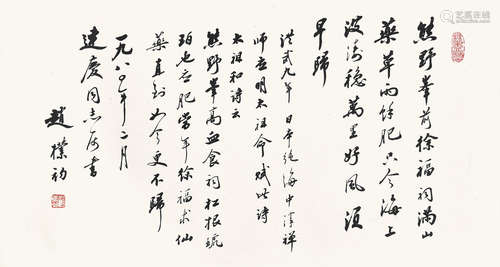 熊野峯前徐福祠满山
藥草雨餘肥只今海上
波濤穩萬里好風須
早歸
洪武九年日本絶海中津禅
师应明太祖命赋此诗
太祖和诗云
熊野峯高血食祠松根琥
珀也应肥當年徐福求仙
藥直到如今更不歸
一九八〇年二月
建慶同志属書
趙樸初